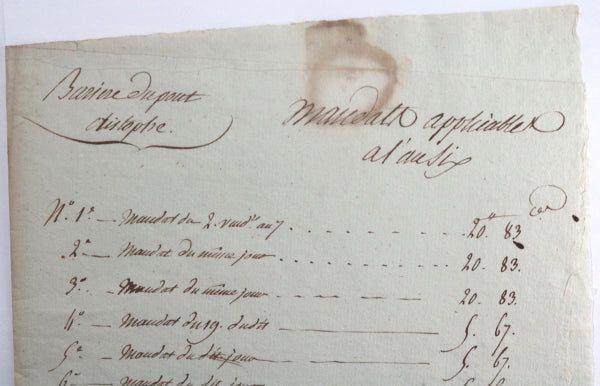 Bariere du pont
distophe.
Mandats applicables
a l'an six
fr cen
N.º 1.º — Mandat du 2. vend.re an 7 . . . . . . . 20. 83.
2.º — Mandat du même jour . . . . . . . 20. 83.
3.º — Mandat du même jour . . . . . . . 20. 83.
4.º — Mandat du 19. dudit — 5. 67.
5.º — Mandat du dit jour — 5. 67.
6.º — Mandat du dit jour